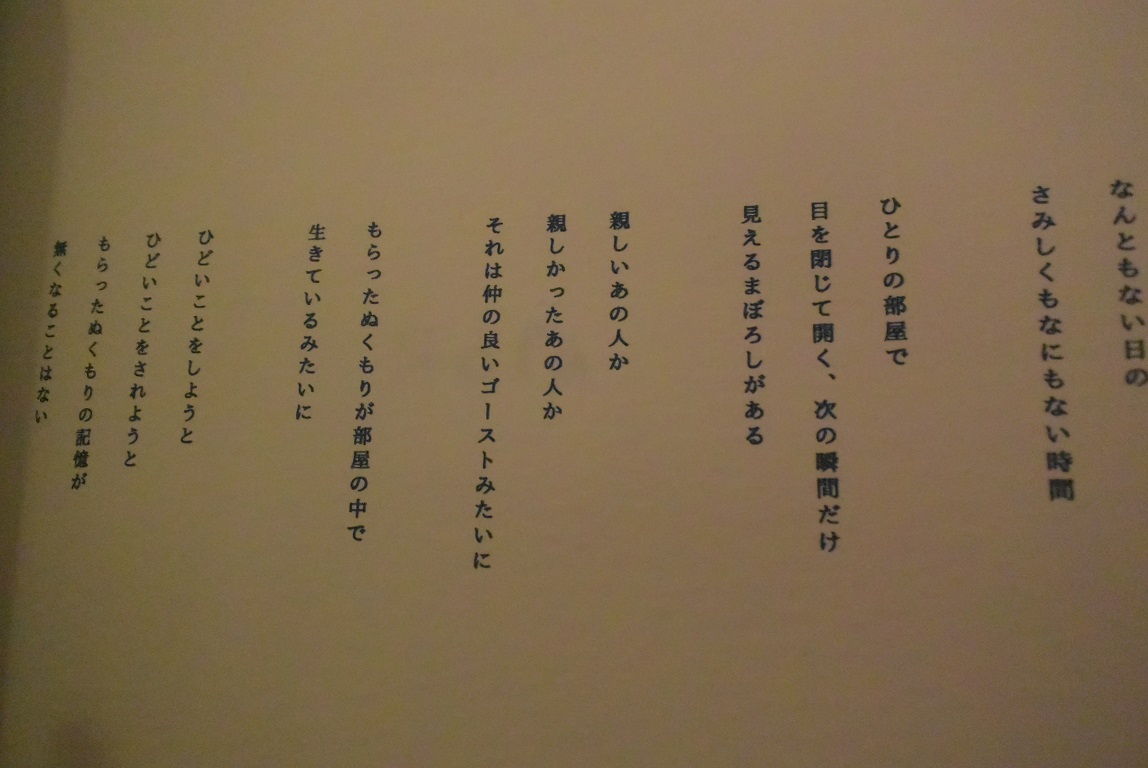 なんともない日の
さみしくもなにもない時間
ひとりの部屋で
目を閉じて開く、次の瞬間だけ
見えるまぼろしがある
親しいあの人か
親しかったあの人か
それは仲の良いゴーストみたいに
もらったぬくもりが部屋の中で
生きているみたいに
ひどいことをしようと
ひどいことをされようと
もらったぬくもりの記憶が
無くなることはない